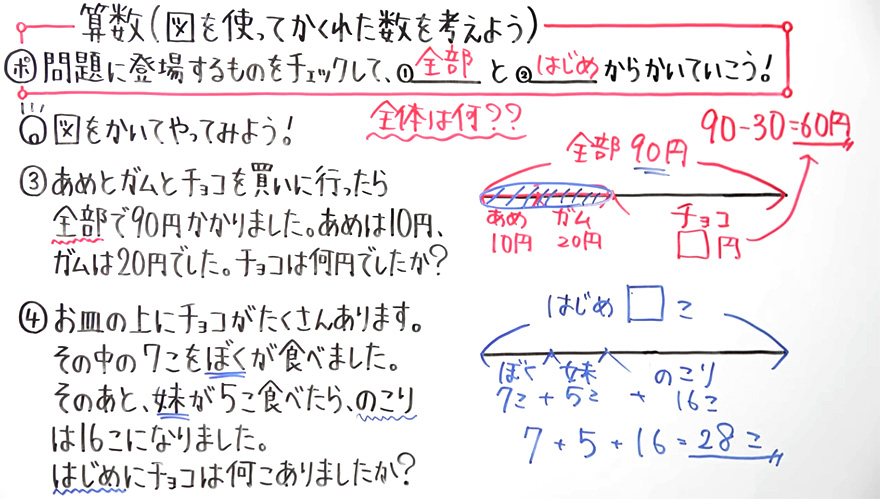 算数(図を使ってかくれた数を考えよう)
ポ 問題に登場するものをチェックして、①全部と②はじめからかいていこう!
図をかいてやってみよう!
全体は何??
③あめとガムとチョコを買いに行ったら
全部で90円かかりました。あめは10円、
ガムは20円でした。チョコは何円でしたか?
90-30=60円
全部 90円
あめ ガム チョコ
10円 20円 □円
④お皿の上にチョコがたくさんあります。
その中の7こをぼくが食べました。
そのあと、妹が5こ食べたら、のこり
は16こになりました。
はじめにチョコは何こありましたか?
はじめ □ こ
ぼく 妹 のこり
7こ + 5こ + 16こ
7+5+16=28こ